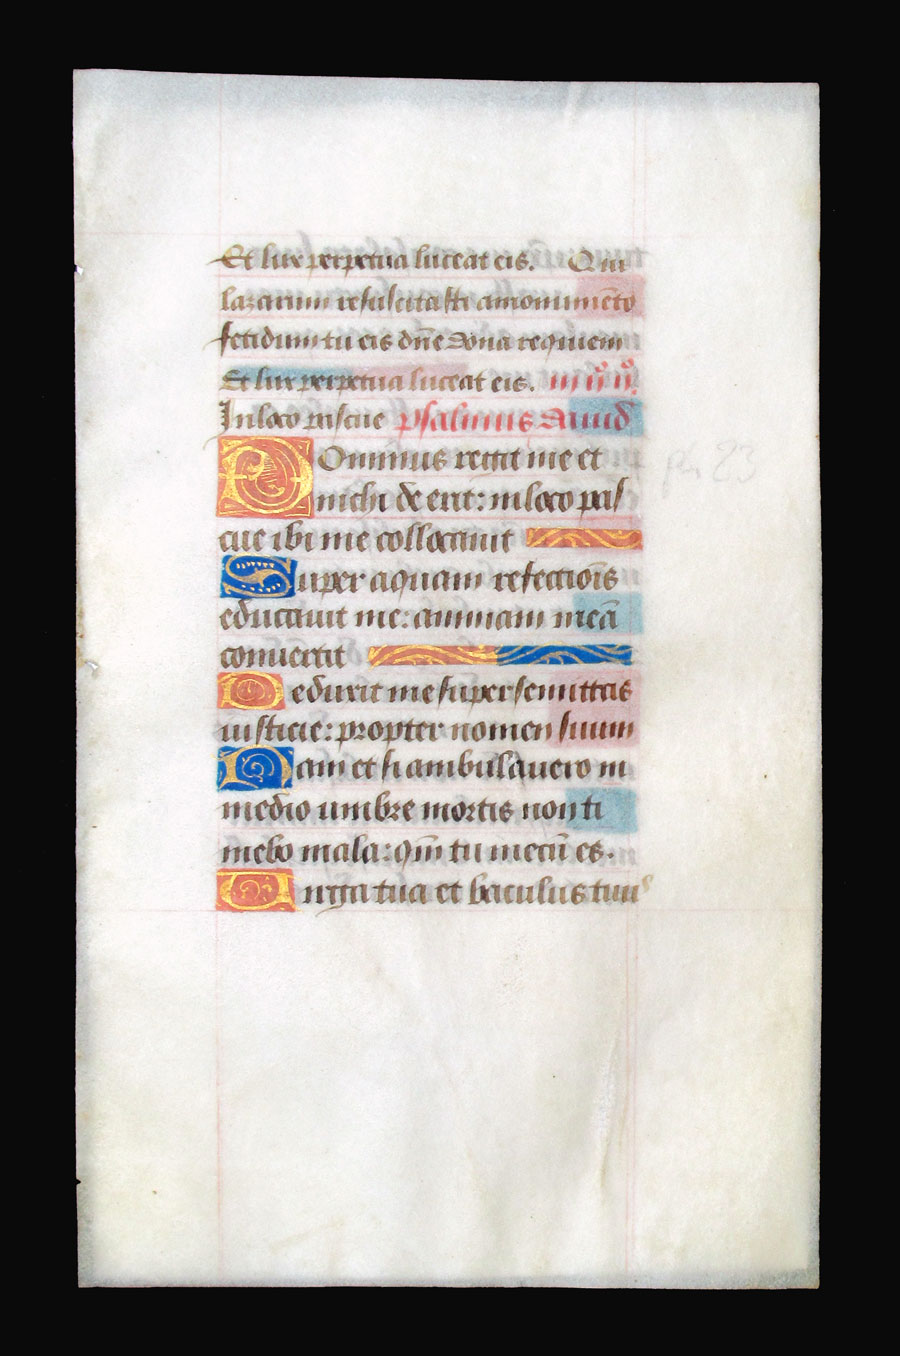 Et lux perpetua luceat eis. Qui
lazarum resuscitasti amonumẽto
fetidum tu eis dñe dona requiem
Et lux perpetua luceat eis.
In loco pascue psalmus dauid
Dominus regit me et
nichi de erit: in loco pas
cue ibi me collocauit
Super aquam refectiõis
educauit me: animam meã
conuertit
Deduxit me super semittas
iusticie: propter nomen suum
Nam et si ambulauero in
medio umbre mortis non ti
mebo mala: qm̃ tu mecũ es.
Uirga tua et baculus tuus
ps 23